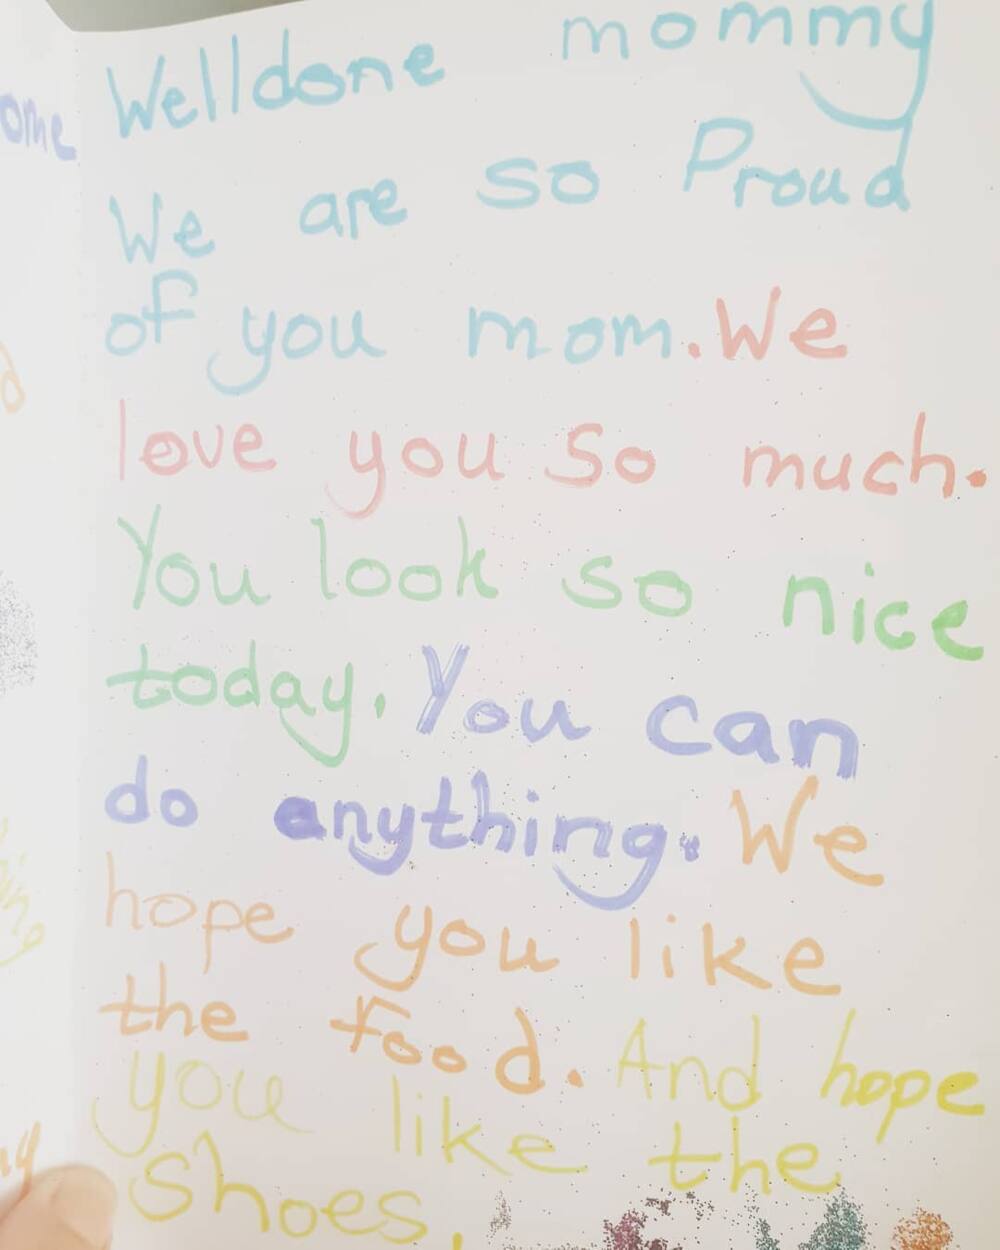 Welldone mommy
We are so Proud
of you mom. We
love you so much.
You look so nice
today. You can
do anything. We
hope you like
the food. And hope
you like the
shoes.
ome